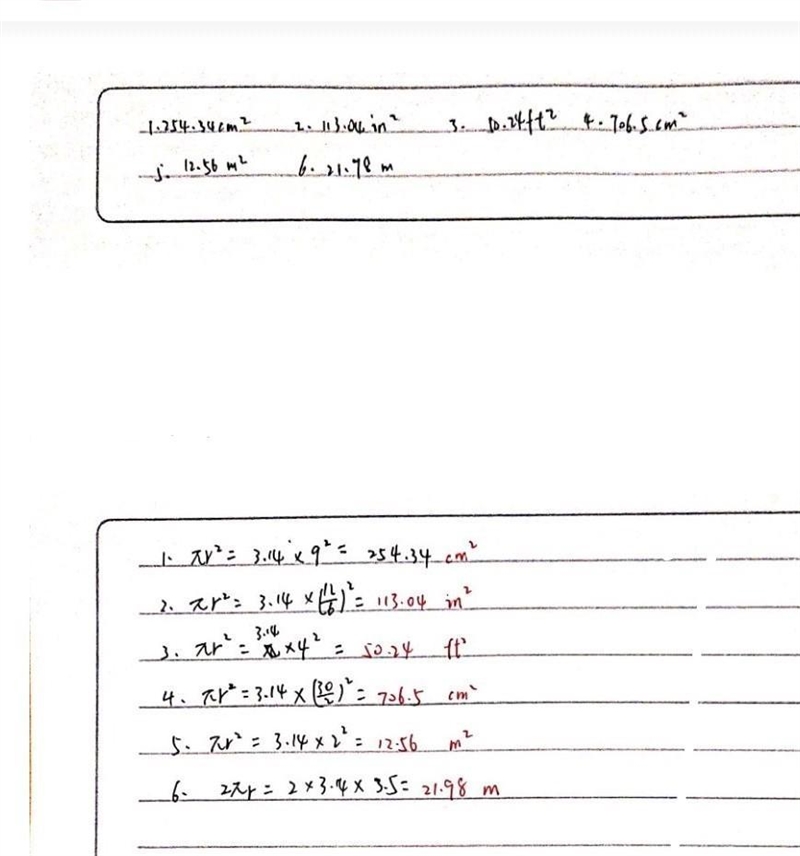 1. 254.34 cm² 2. 113.04 in² 3. 50.24 ft² 4. 706.5 cm²
5. 12.56 m² 6. 21.78 m
1. πr² = 3.14 × 9² = 254.34 cm²
2. πr² = 3.14 × (12/6)² = 113.04 in²
3. πr² = 3.14 × 4² = 50.24 ft²
4. πr² = 3.14 × (30/2)² = 706.5 cm²
5. πr² = 3.14 × 2² = 12.56 m²
6. 2πr = 2 × 3.14 × 3.5 = 21.98 m